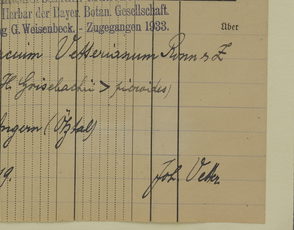 Herbar der Bayer. Botan. Gesellschaft.
g G. Weisenbeck. - Zugegangen 1933.
über
acium Vetterianum Ronn & Z
H Grisebachii > picroides)
Angern (Ötztal)
19.
Joh. Vetter.